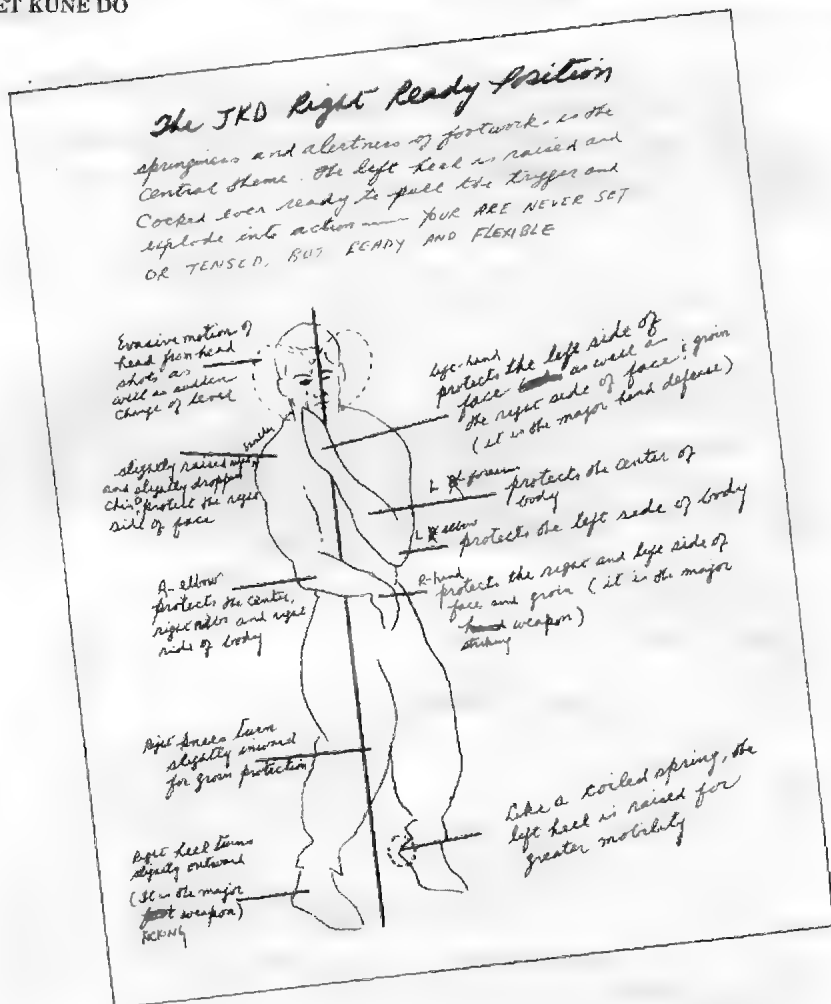 ET KUNE DO
The JKD Right Ready Position
springiness and alertness of footwork. is the
central theme. The left heel is raised and
cocked ever ready to pull the trigger and
explode into action — YOUR ARE NEVER SET
OR TENSED, BUT READY AND FLEXIBLE
Evasive motion of
head from head
shots as
well as sudden
change of level
shoulder
slightly raised
and slightly dropped
chin protect the right
side of face
R-elbow
protects the center,
right ribs and right
side of body
Right knees turn
slightly inward
for groin protection
Right heel turns
slightly outward
(It is the major
weapon)
KICKING
left-hand
protects the left side of
face as well as
the right side of face & groin
(it is the major hand defense)
L forearm
protects the center of
body
L elbow
protects the left side of body
R-hand
protects the right and left side of
face and groin (it is the major
weapon)
striking
Like a coiled spring, the
left heel is raised for
greater mobility